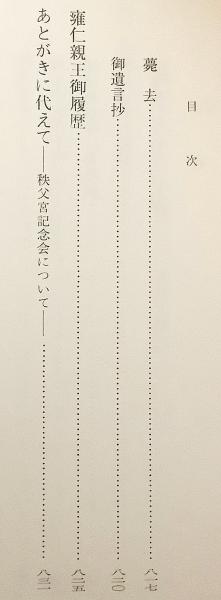 目次
薨去 八一七
御遺言抄 八二〇
雍仁親王御履歴 八二五
あとがきに代えて――秩父宮記念会について―― 八三一